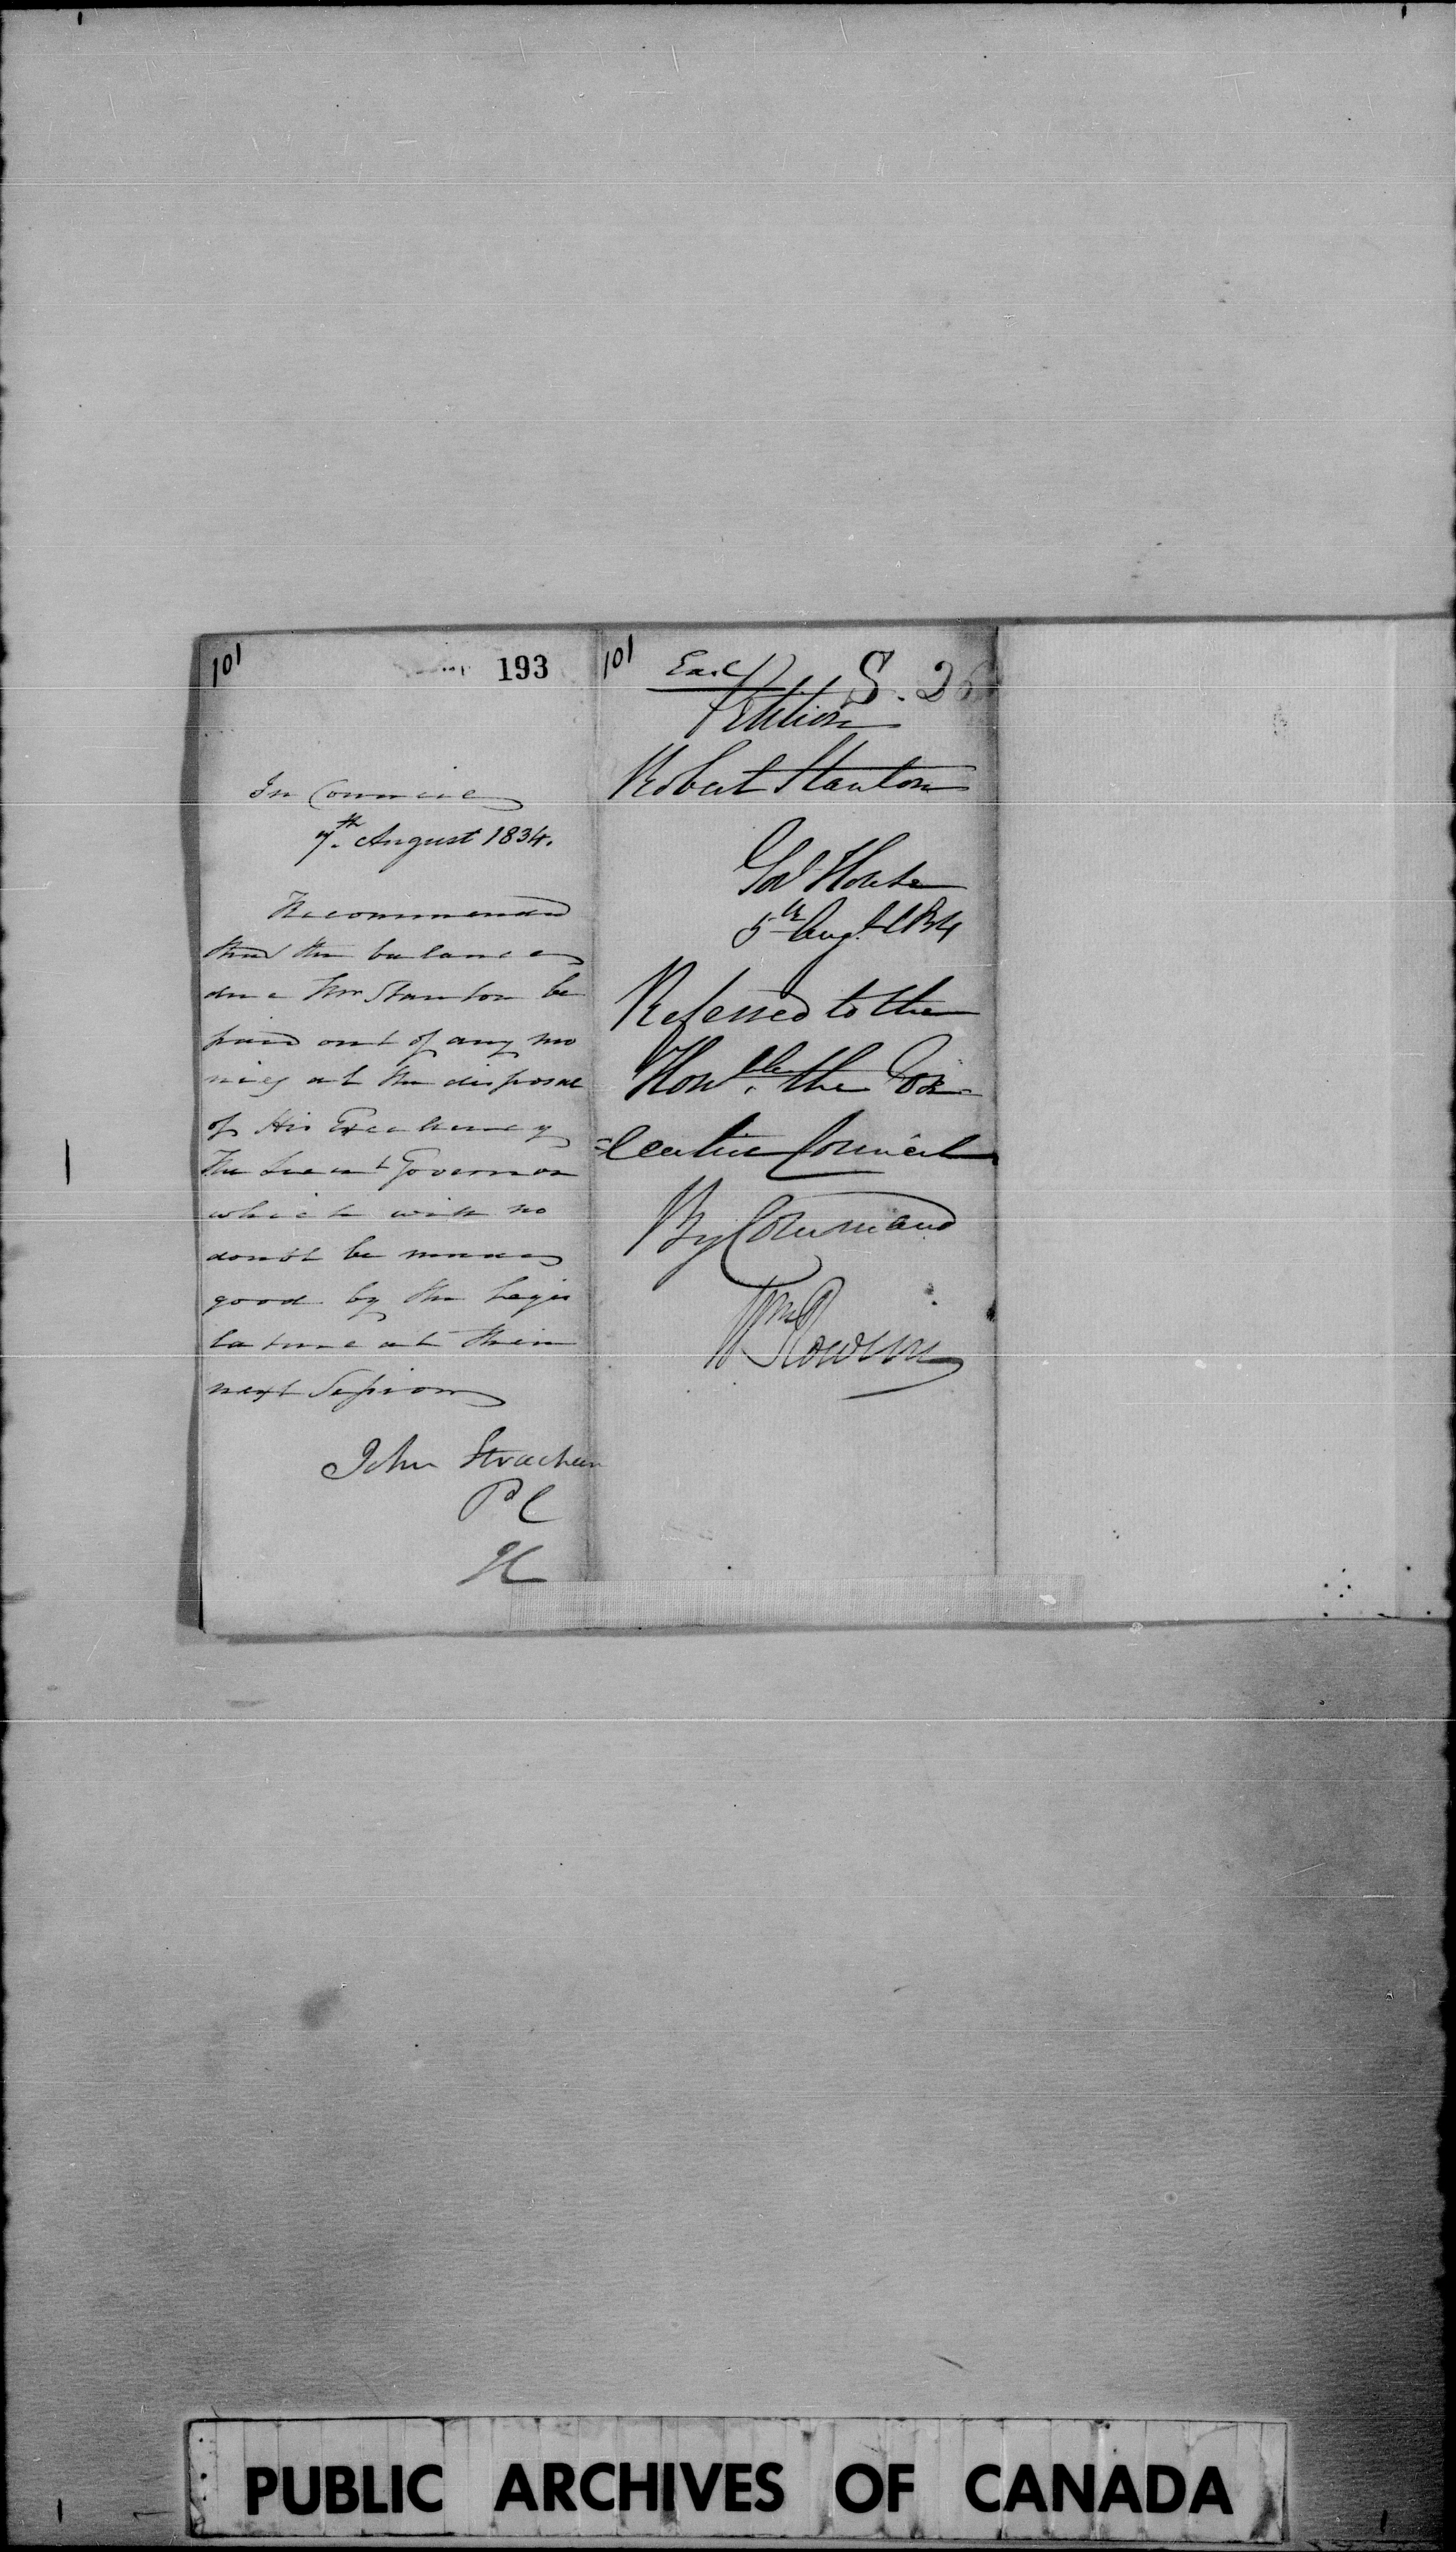 101
193
In Council
7th. August 1834.
Recommended
that the balance
due Mr Stanton be
paid out of any mo
nies at the disposal
of His Excellency
The Lieut Governor
which will no
doubt be made
good by the Legis
lature at their
next Session
John Strachan
P C
101
S. 26
Petition
Robert Stanton
Govt House
5th Augt 1834
Referred to the
Honble. the Exe
=cutive Council
By Command
Wm Rowan
PUBLIC ARCHIVES OF CANADA